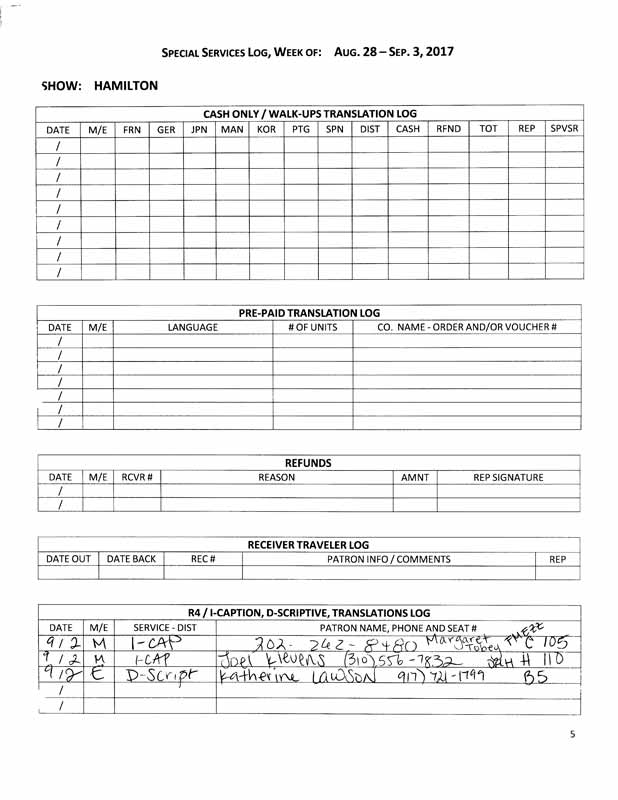 SPECIAL SERVICES LOG, WEEK OF: AUG. 28 – SEP. 3, 2017
SHOW: HAMILTON
CASH ONLY / WALK-UPS TRANSLATION LOG
DATE M/E FRN GER JPN MAN KOR PTG SPN DIST CASH RFND TOT REP SPVSR
/
/
/
/
/
/
/
/
/
PRE-PAID TRANSLATION LOG
DATE M/E LANGUAGE # OF UNITS CO. NAME - ORDER AND/OR VOUCHER #
/
/
/
/
/
/
/
REFUNDS
DATE M/E RCVR # REASON AMNT REP SIGNATURE
/
/
RECEIVER TRAVELER LOG
DATE OUT DATE BACK REC # PATRON INFO / COMMENTS REP
R4 / I-CAPTION, D-SCRIPTIVE, TRANSLATIONS LOG
DATE M/E SERVICE - DIST PATRON NAME, PHONE AND SEAT #
9/2 M I-CAP 202-262-8480 Margaret Tobey C 105
9/2 M I-CAP Joel Klevens (310) 556-7832 H 110
9/2 E D-Script Katherine Lawson 917) 721-1799 B5
/
/
5